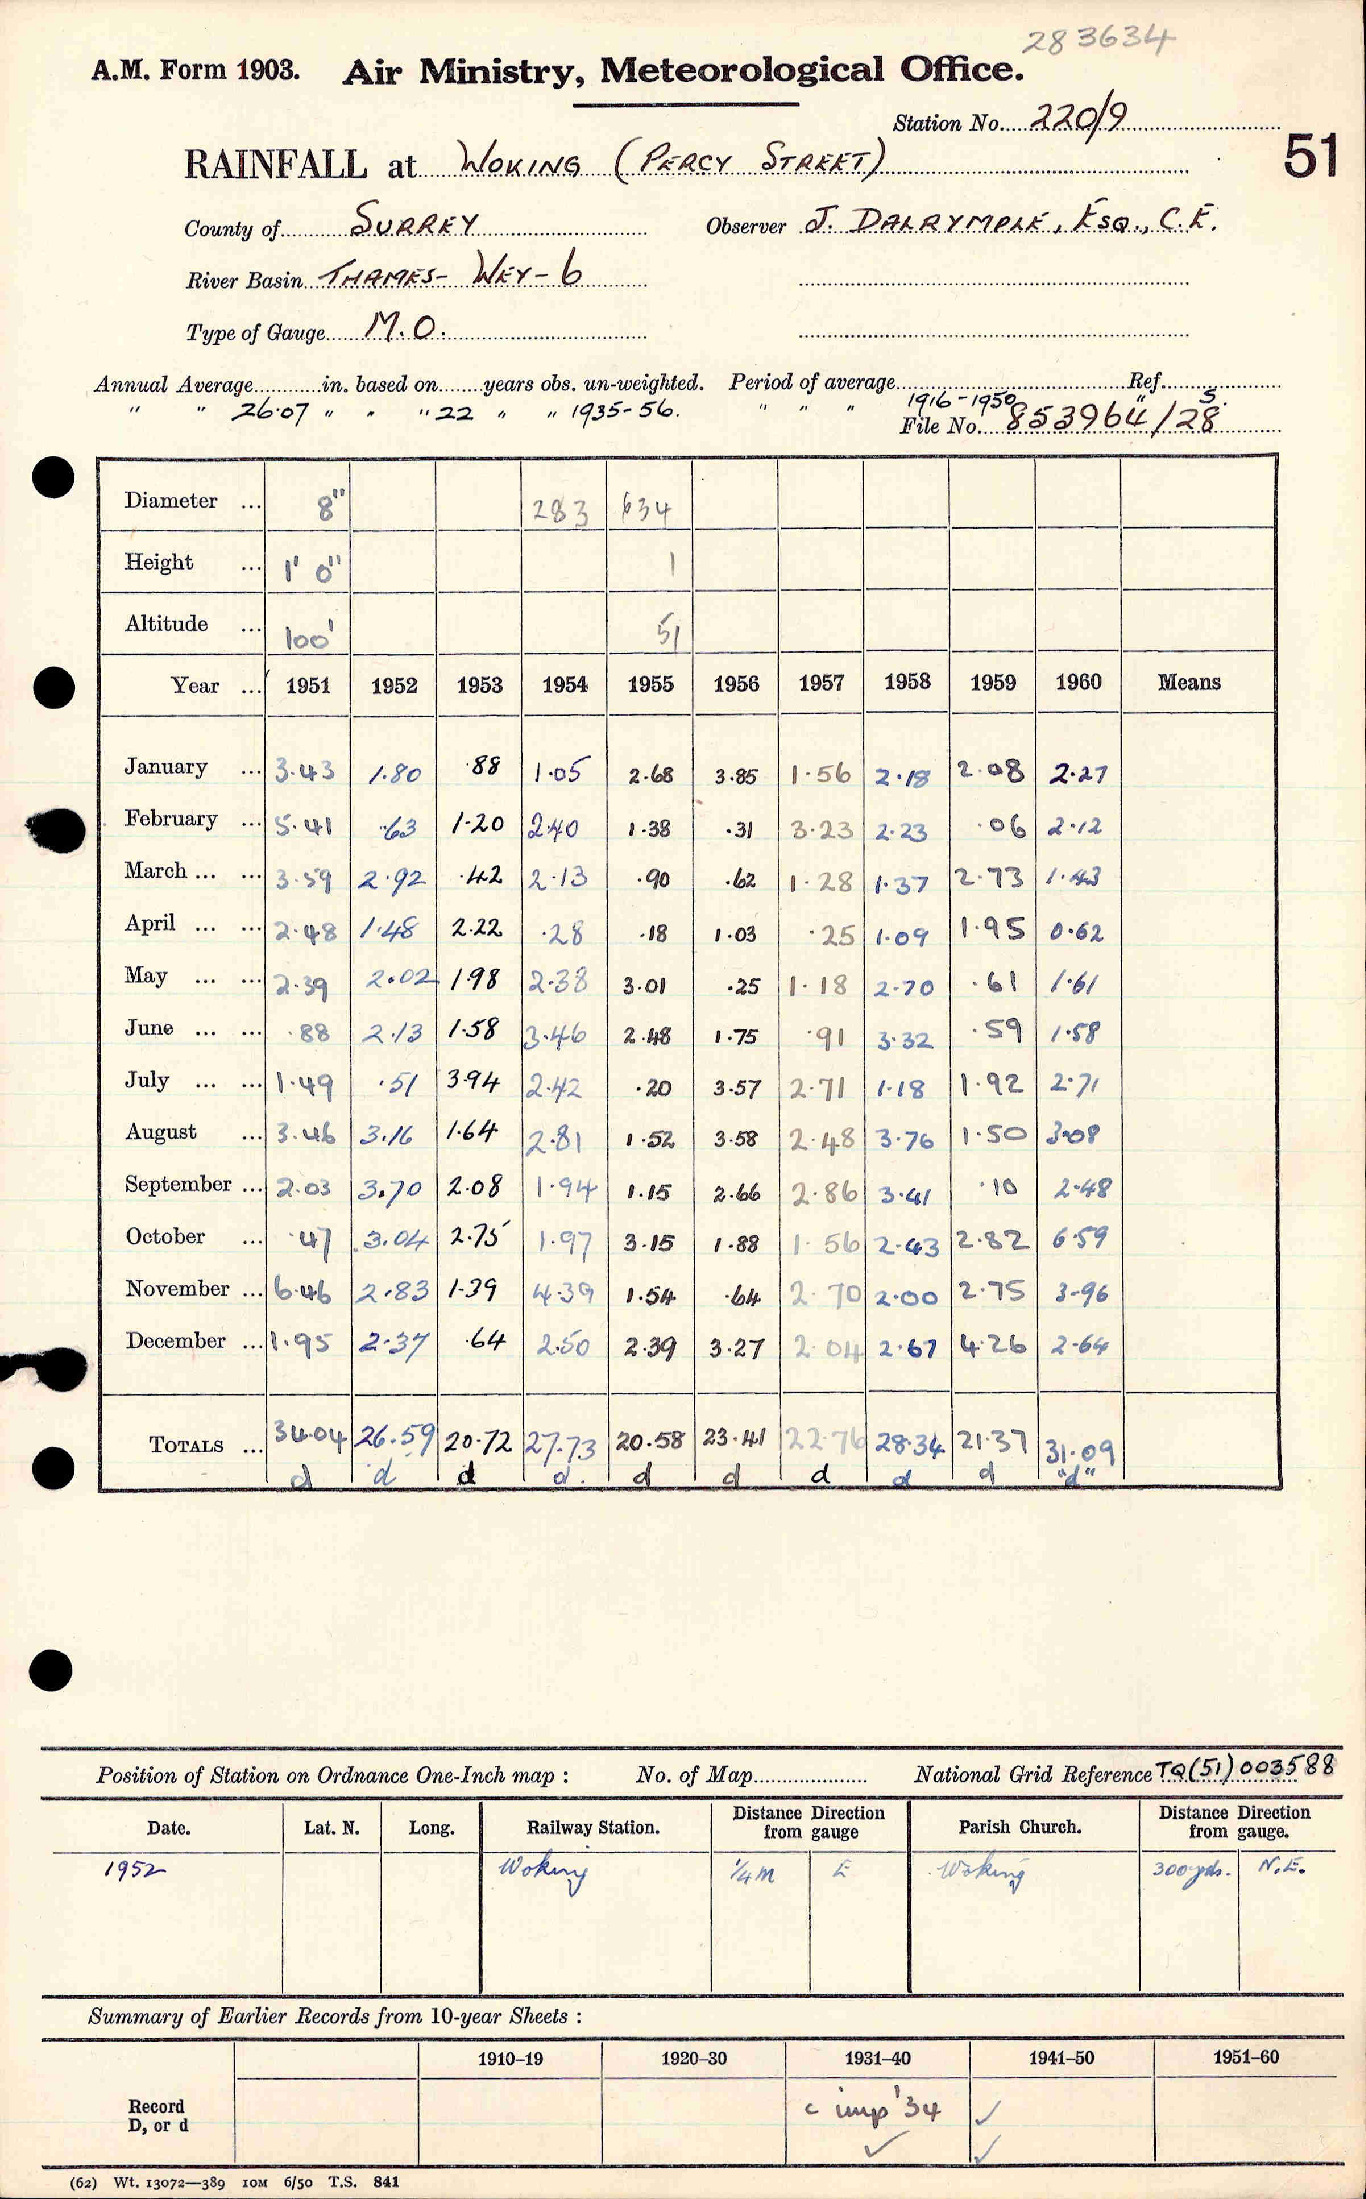 283634
A.M. Form 1903. Air Ministry, Meteorological Office.
Station No. 220/9
51
RAINFALL at WOKING (PERCY STREET)
County of SURREY Observer J. DALRYMPLE, ESQ., C.E.
River Basin THAMES- WEY- 6
Type of Gauge M.O.
Annual Average in. based on years obs. un-weighted. Period of average Ref.
" " 26.07 " " " 22 " " 1935-56. " " " 1916-1950 " S.
File No. 853964/28
Diameter ... 8" 283 634
Height ... 1' 0" 1
Altitude ... 100' 51
Year ... 1951 1952 1953 1954 1955 1956 1957 1958 1959 1960 Means
January ... 3.43 1.80 .88 1.05 2.68 3.85 1.56 2.18 2.08 2.27
February ... 5.41 .63 1.20 2.40 1.38 .31 3.23 2.23 .06 2.12
March ... ... 3.59 2.92 .42 2.13 .90 .62 1.28 1.37 2.73 1.43
April ... ... 2.48 1.48 2.22 .28 .18 1.03 .25 1.09 1.95 0.62
May ... ... 2.39 2.02 1.98 2.38 3.01 .25 1.18 2.70 .61 1.61
June ... ... .88 2.13 1.58 3.46 2.48 1.75 .91 3.32 .59 1.58
July ... ... 1.49 .51 3.94 2.42 .20 3.57 2.71 1.18 1.92 2.71
August ... 3.46 3.16 1.64 2.81 1.52 3.58 2.48 3.76 1.50 3.08
September ... 2.03 3.70 2.08 1.94 1.15 2.66 2.86 3.41 .10 2.48
October ... .47 3.04 2.75 1.97 3.15 1.88 1.56 2.43 2.82 6.59
November ... 6.46 2.83 1.39 4.39 1.54 .64 2.70 2.00 2.75 3.96
December ... 1.95 2.37 .64 2.50 2.39 3.27 2.04 2.67 4.26 2.64
TOTALS ... 34.04 26.59 20.72 27.73 20.58 23.41 22.76 28.34 21.37 31.09
d d d d. d d d d d "d"
Position of Station on Ordnance One-Inch map : No. of Map National Grid Reference TQ(51) 003588
Date. Lat. N. Long. Railway Station. Distance Direction from gauge Parish Church. Distance Direction from gauge.
1952 Woking 1/4 M E Woking 300 yds. N.E.
Summary of Earlier Records from 10-year Sheets :
1910–19 1920–30 1931–40 1941–50 1951–60
Record D, or d c imp '34 ✓
✓ ✓
(62) Wt. 13072—389 10M 6/50 T.S. 841